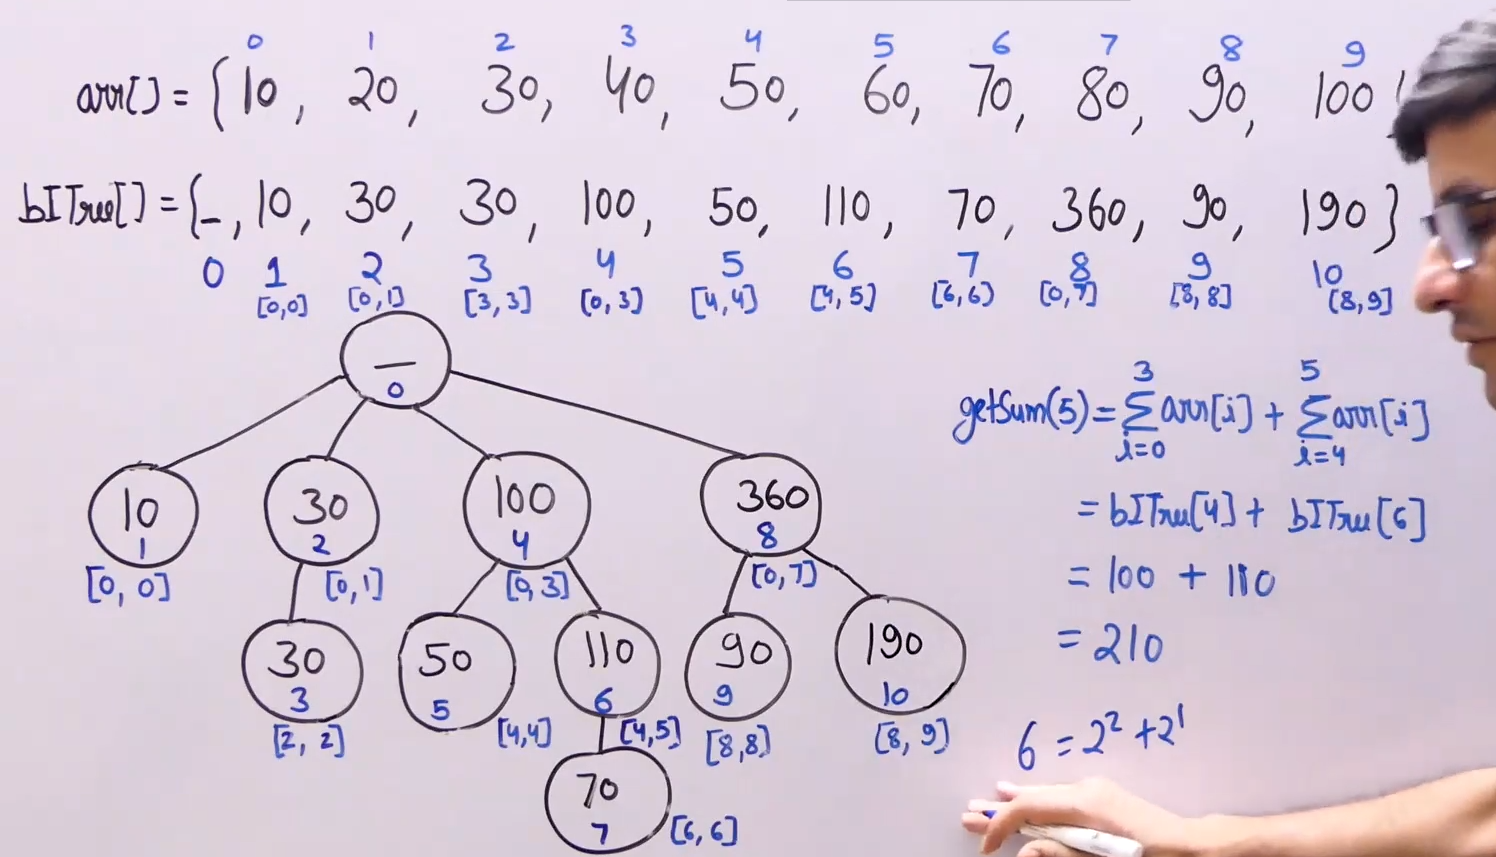 0 1 2 3 4 5 6 7 8 9
arr[] = { 10, 20, 30, 40, 50, 60, 70, 80, 90, 100
bITree[] = { –, 10, 30, 30, 100, 50, 110, 70, 360, 90, 190 }
0 1 2 3 4 5 6 7 8 9 10
[0,0] [0,1] [3,3] [0,3] [4,4] [4,5] [6,6] [0,7] [8,8] [8,9]
—
0
10
1
[0, 0]
30
2
[0,1]
100
4
[0,3]
360
8
[0,7]
30
3
[2, 2]
50
5
[4,4]
110
6
[4,5]
90
9
[8,8]
190
10
[8, 9]
70
7
[6,6]
3 5
getSum(5) = ∑ arr[i] + ∑ arr[i]
i=0 i=4
= bITree[4] + bITree[6]
= 100 + 110
= 210
6 = 2² + 2¹